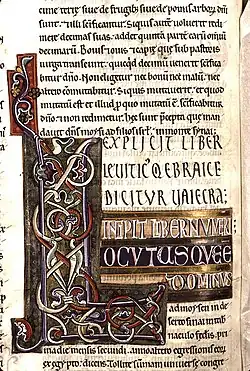 cime terre sive de frugib; sive de pomis arbor̄, dn̄i
sunt· ⁊ illi sc̄ificant̄. Siquis aut̄ voluerit redi
mere decimas suas· addet quintā partē earū om̄iū
decimarū. Bovis ⁊ovis ⁊ capre que sub pastoris
virga transeunt·
decimū venerit sc̄ificabi
tur dn̄o· Non eliget̄ nec bonū nec malū· nec
altero cōmutabitur. Siquis mutaverit· et quod
mutatū est et illud ꝓ quo mutatū ē· sc̄ificabitur
dn̄o ⁊ non redimetur. hec sunt p̄cepta que man
davit dn̄s moysi ad filios isrl̄· in monte synai;
EXPLICIT LIBER
LEVITIC⁹ Q EBRAICE
DICITUR VAIECRA;
INCIPIT LIBER NUMERI
LOCUTUS QUE E
DOMINUS
ad moysen in de
serto sinai in tab
naculo federis. pri
ma die mensis secundi. anno altero egressionis eor̄
ex egypto· dicens. Tollite summam universe congre